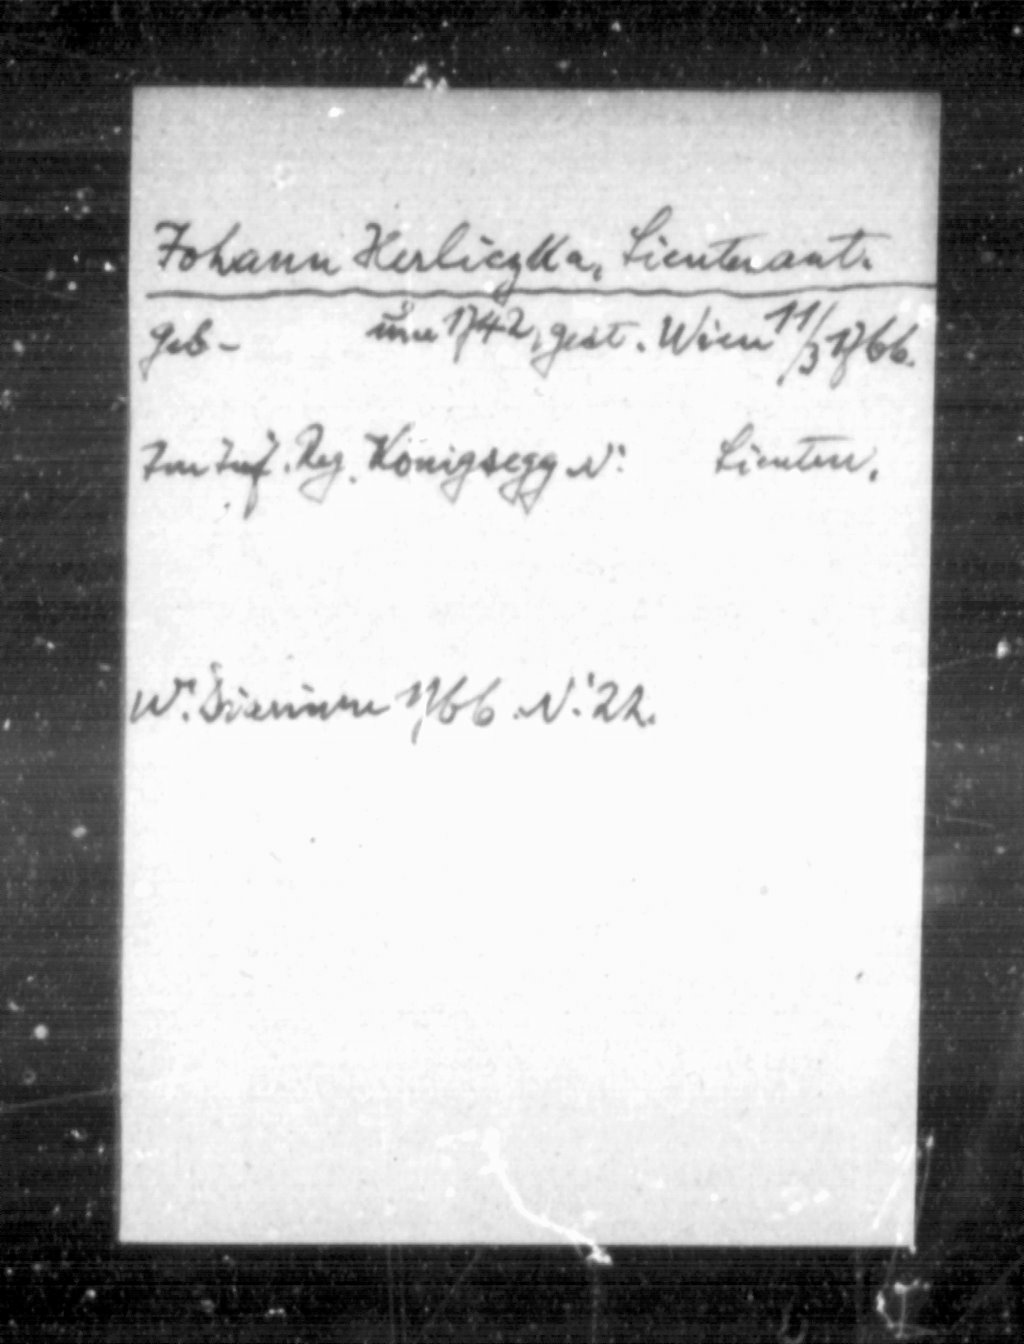 Johann Herliczka, Lieutenant.
geb- um 1742, gest. Wien 11/3 1766.
Im Inf. Reg. Königsegg N: Lieuten.
W. Diarium 1766 N: 22.